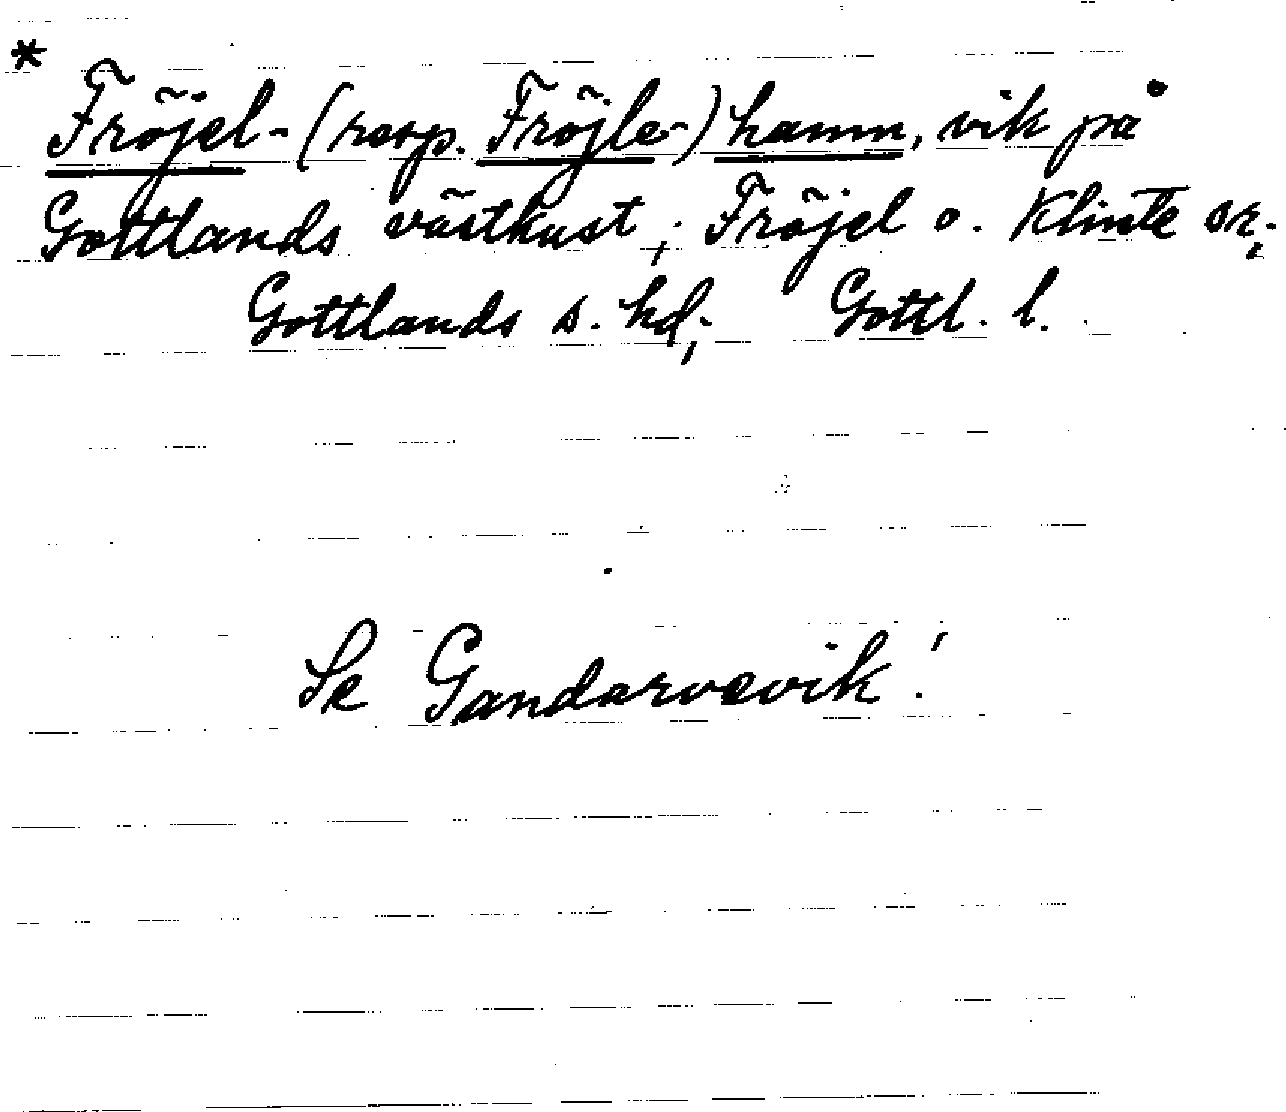 *
Fröjel- (resp. Fröjle-) hamn, vik på
Gottlands västkust; Fröjel o. Klinte sr;
Gottlands s. hd; Gottl. l.
Se Gandarvevik!